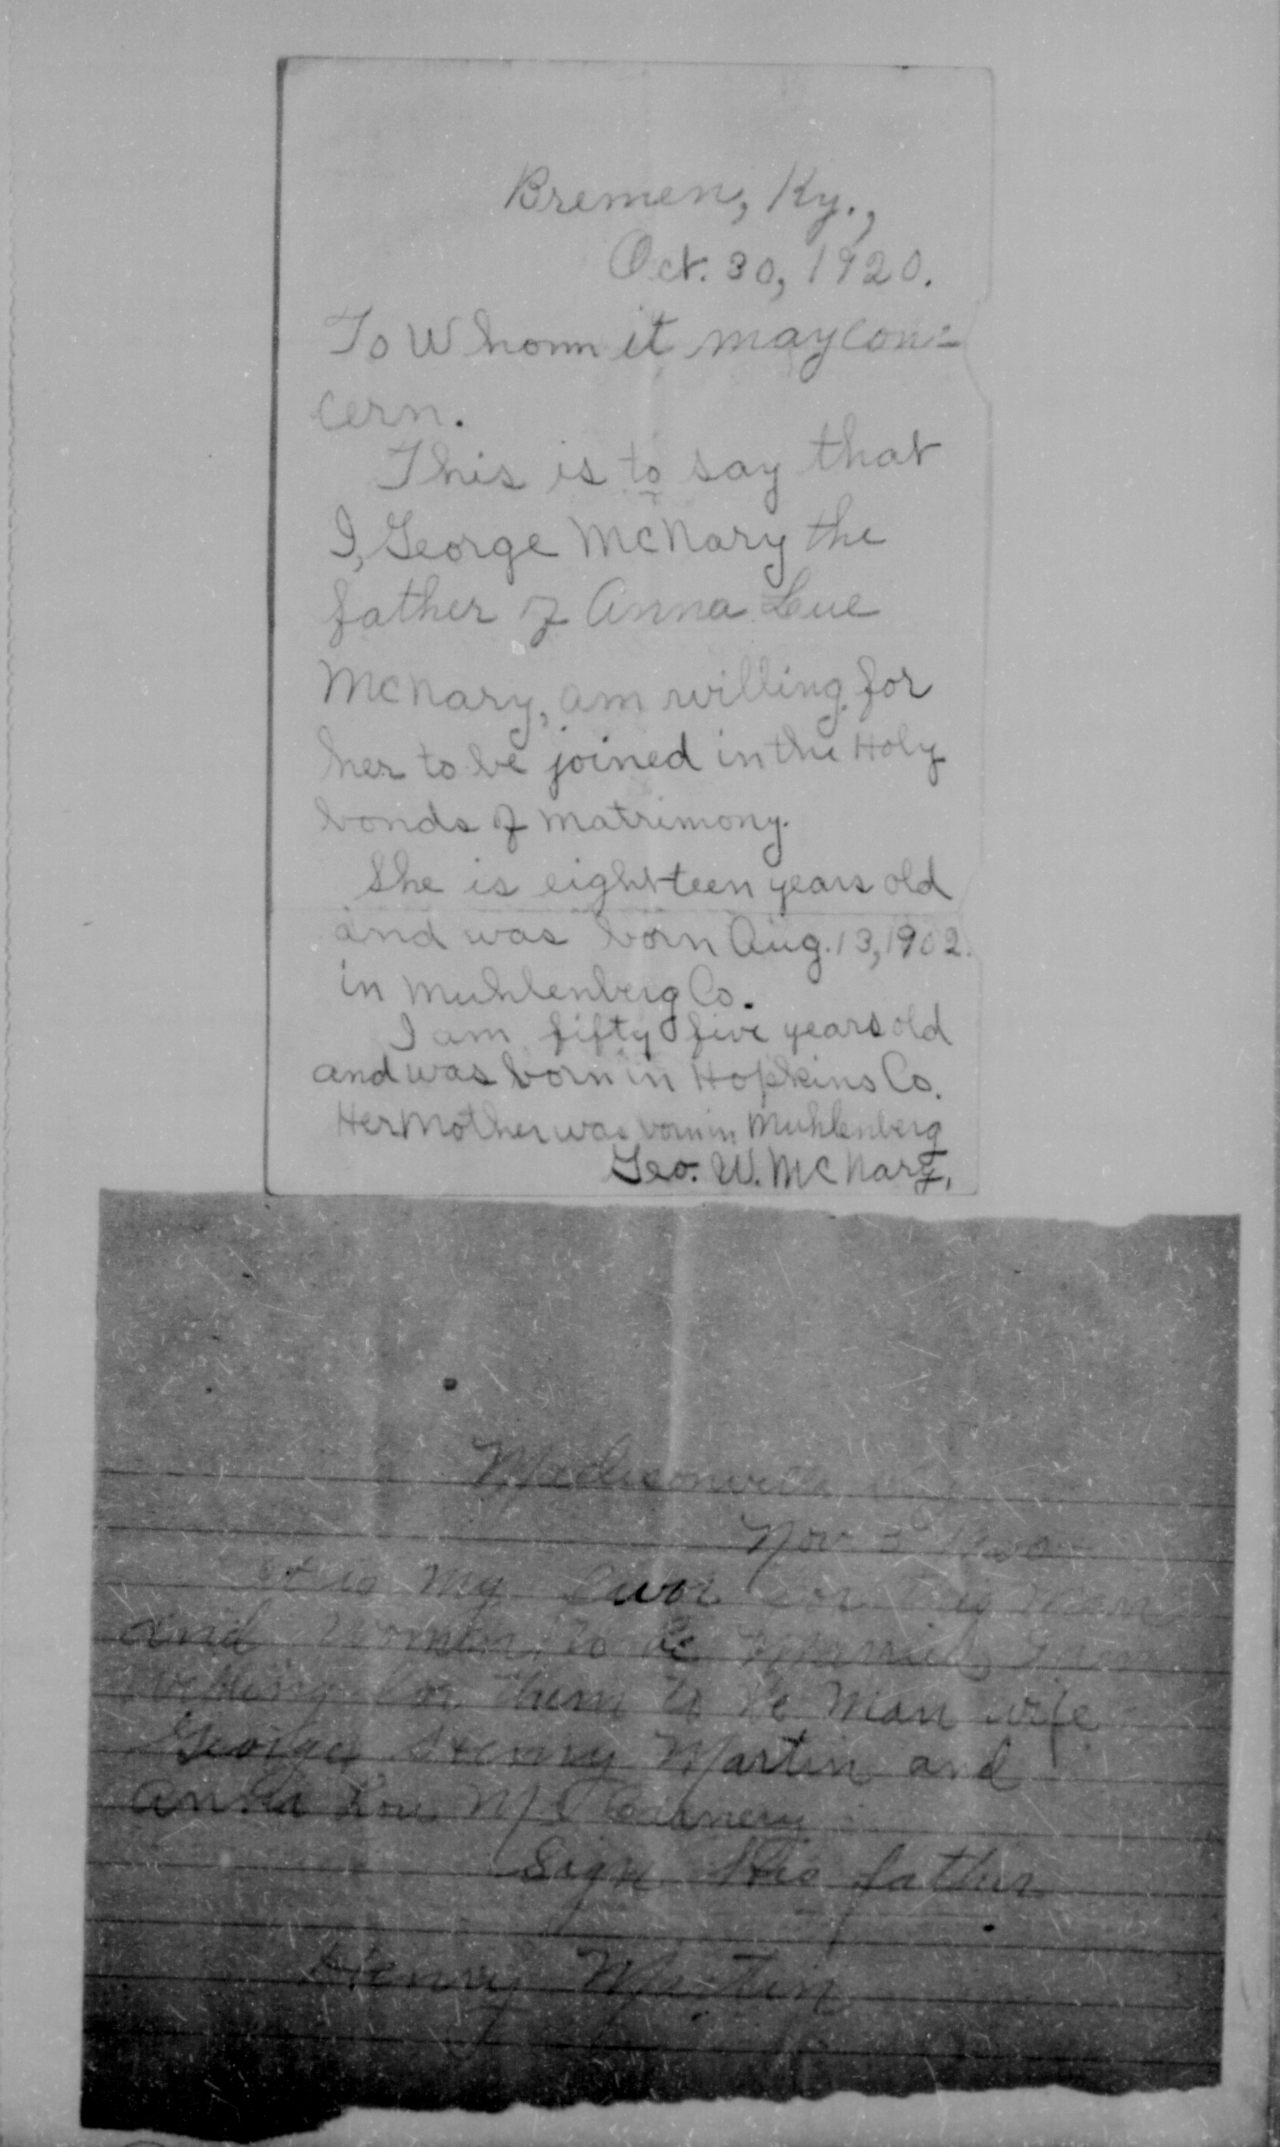 Bremen, Ky.,
Oct. 30, 1920.
To Whom it may con-
cern.
This is to say that
I, George McNary the
father of Anna Lue
McNary, am willing for
her to be joined in the Holy
bonds of matrimony.
She is eighteen years old
and was born Aug. 13, 1902.
in Muhlenberg Co.
I am fifty five years old
and was born in Hopkins Co.
Her Mother was born in Muhlenberg
Geo. W. McNary.
Madisonville Ky
Nov 3 1920
it is my for man
and women to be Married I am
willing for them to be man wife
George Henry Martin and
Anna Lou
Sign His father
Henry Martin